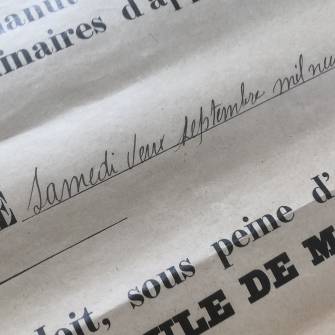 manu
inaires d'ap
E Samedi deux septembre mil neu
doit, sous peine d'
ILE DE M